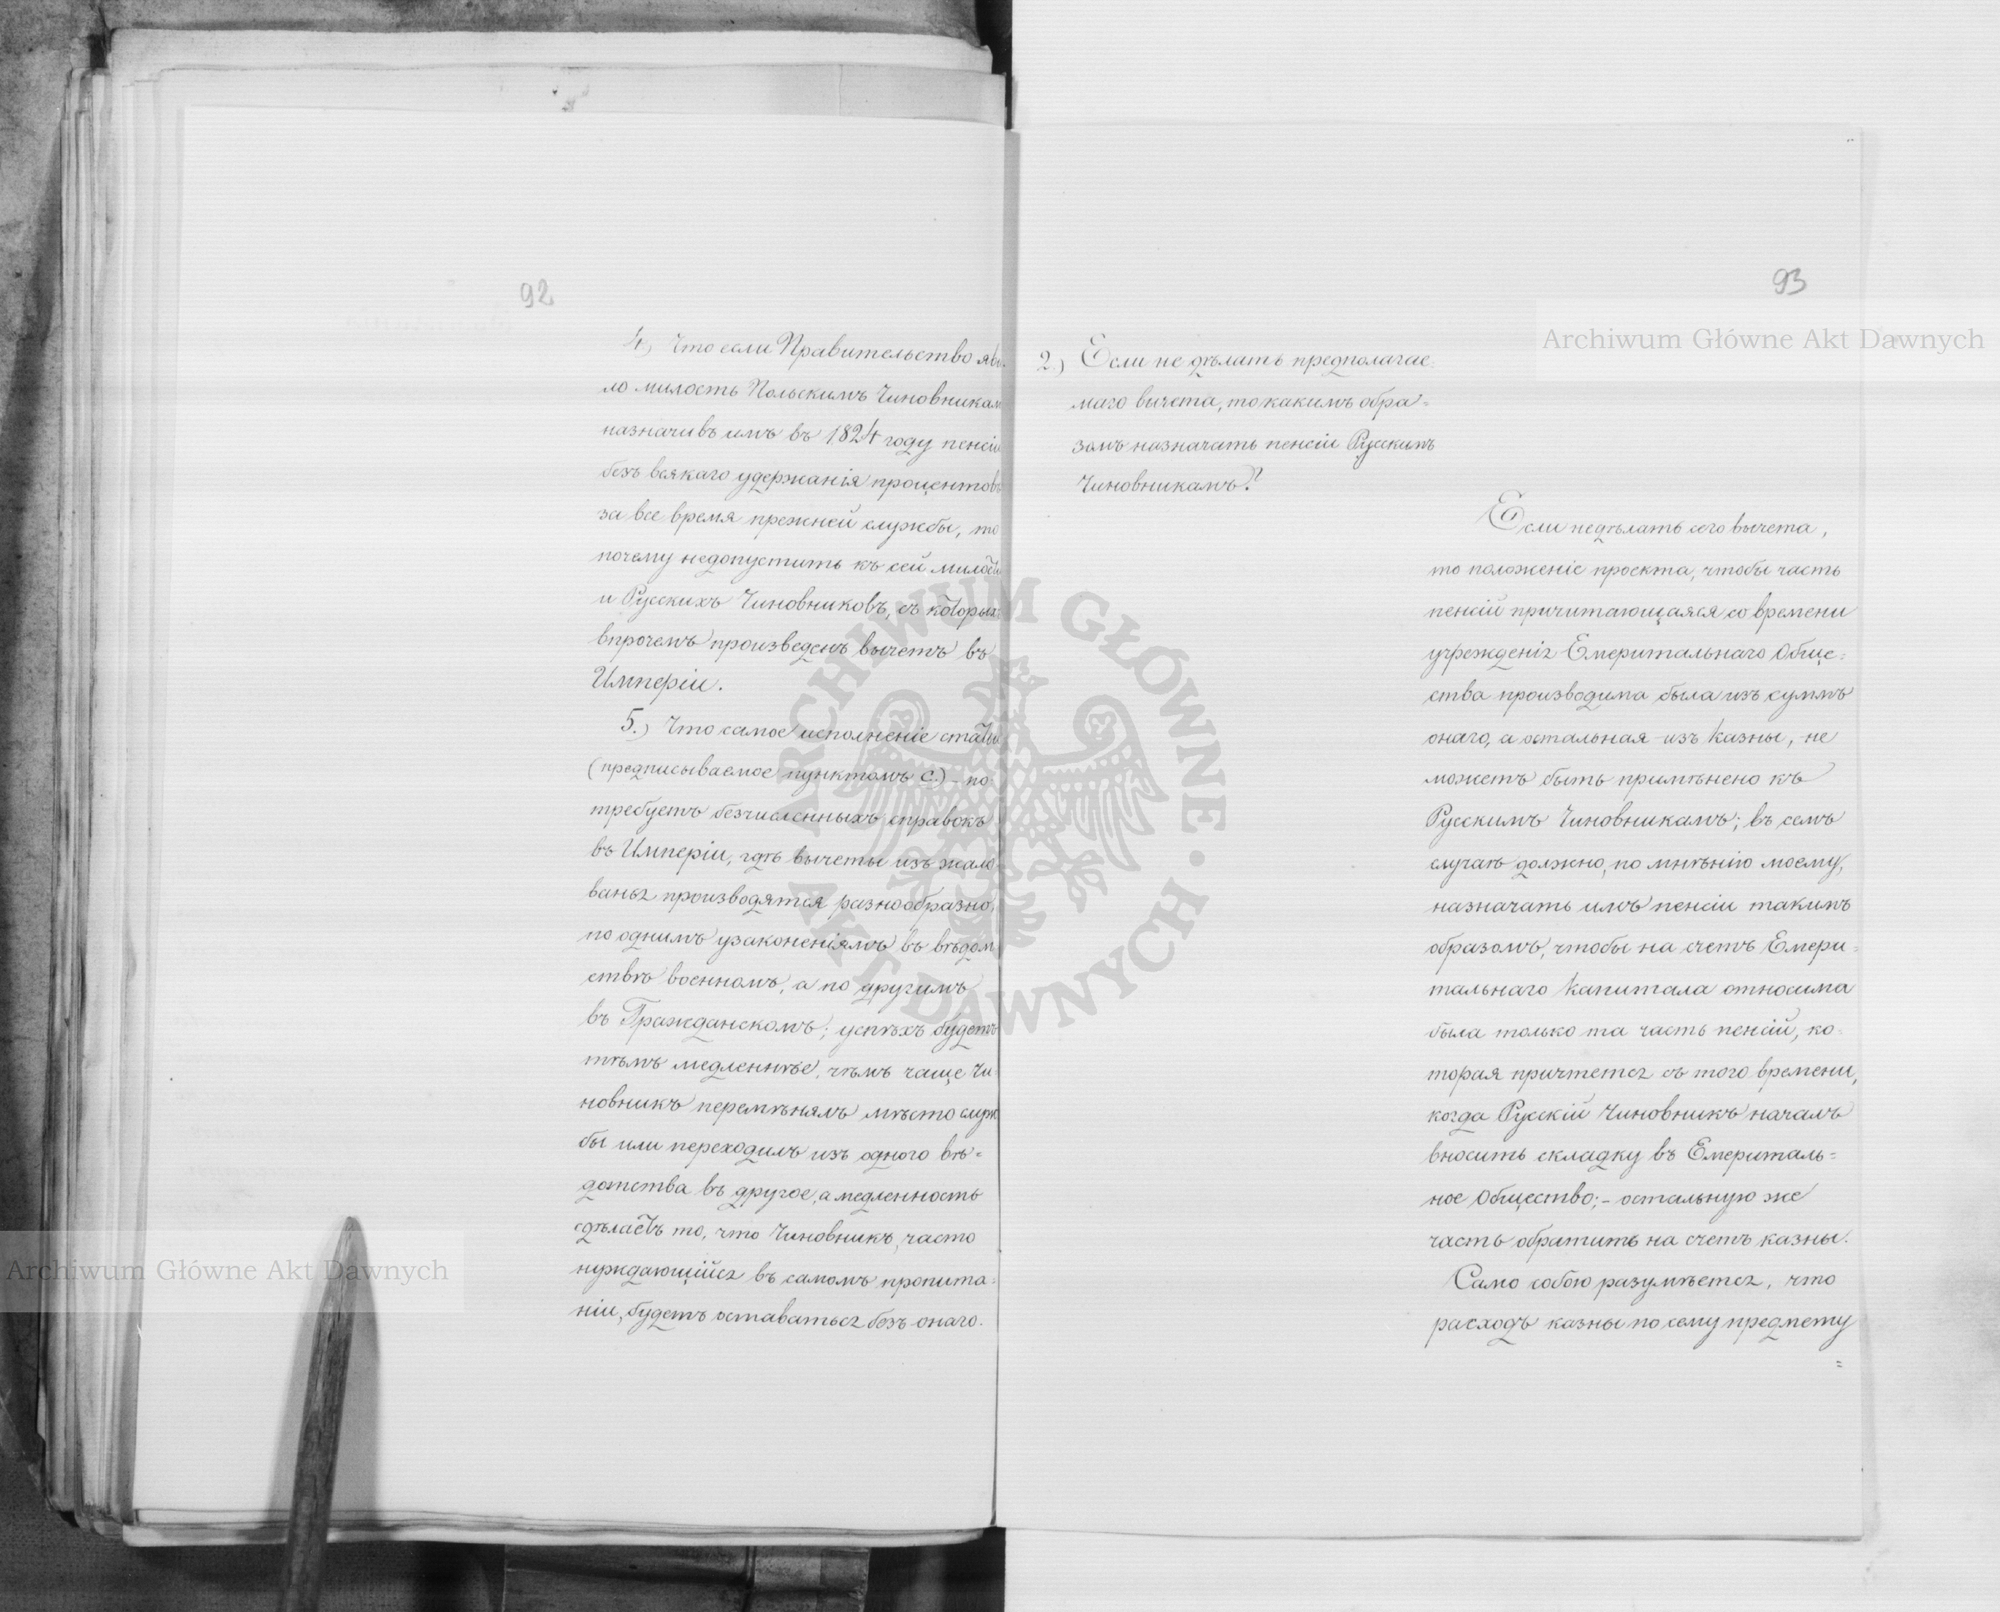 92
4) Что если Правительство яви-
ло милость Польскимъ Чиновникам
назначивъ имъ въ 1824 году пенсіи
безъ всякаго удержанія процентовъ
за все время прежней службы, то
почему недопустить къ сей милости
и Русскихъ Чиновниковъ, съ которых
впрочемъ произведенъ вычетъ въ
Имперіи.
5.) Что самое исполненіе статьи
(предписываемое пунктомъ С.) - по
требуетъ безчисленныхъ справокъ
въ Имперіи, гдѣ вычеты изъ жало
ванья производятся разнообразно,
по однимъ узаконеніямъ въ вѣдом
ствѣ военномъ, а по другимъ
въ Гражданскомъ; успѣхъ будетъ
тѣмъ медленнѣе, чѣмъ чаще Чи-
новникъ перемѣнялъ мѣсто служ
бы или переходилъ изъ одного вѣ=
домства въ другое, а медленность
сдѣлаетъ то, что Чиновникъ, часто
нуждающійся въ самомъ пропита=
ніи, будетъ оставаться безъ онаго.
93
2.) Если не дѣлать предполагае-
маго вычета, то какимъ обра=
зомъ назначать пенсіи Русскимъ
Чиновникамъ?
Если недѣлать сего вычета,
то положеніе проекта, чтобы часть
пенсій причитающаяся со времени
учрежденія Емеритальнаго Обще=
ства производима была изъ суммъ
онаго, а остальная изъ казны, не
можетъ быть примѣнено къ
Русскимъ Чиновникамъ; въ семъ
случаѣ должно, по мнѣнію моему,
назначать имъ пенсіи такимъ
образомъ, чтобы на счетъ Емери=
тальнаго Капитала относима
была только та часть пенсій, ко=
торая причтется съ того времени,
когда Русскій Чиновникъ началъ
вносить складку въ Емериталь=
ное Общество; - остальную же
часть обратить на счетъ казны.
Само собою разумѣется, что
расходъ казны по сему предмету
=
Archiwum Główne Akt Dawnych
Archiwum Główne Akt Dawnych
ARCHIWUM GŁÓWNE • AKT DAWNYCH •